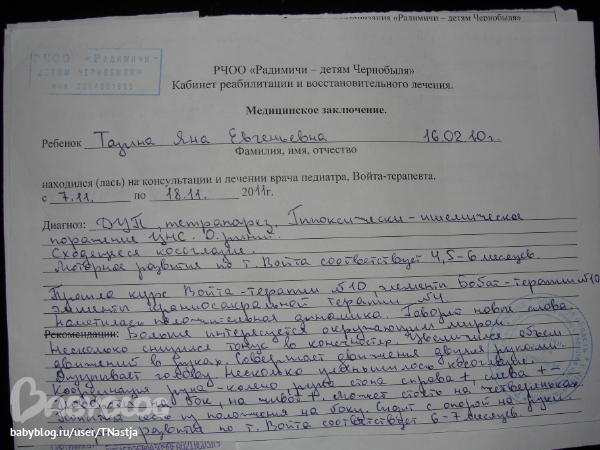 низация «Радимичи – детям Чернобыля»
РЧОО «Радимичи -
детям Чернобыля»
РЧОО «Радимичи – детям Чернобыля»
Кабинет реабилитации и восстановительного лечения.
Медицинское заключение.
Ребенок Яна Евгеньевна 16.02.10г.
Фамилия, имя, отчество
находился (лась) на консультации и лечении врача педиатра, Войта-терапевта.
с 7.11. по 18.11. 2011г.
Диагноз: ДЦП, тетрапарез, Гипоксически-ишемическое
поражение ЦНС.
Сходящееся косоглазие.
Моторное развитие по т. Войта соответствует 4,5-6 месяцев.
Прошла курс Войта-терапии №10, элементы Бобат-терапии №10
элементы краниосакральной терапии №4
Наметилась положительная динамика. Говорит новые слова.
Рекомендации: Больше интересуется окружающим миром.
Несколько снизился тонус в конечностях. Увеличился объем
движений в руках. Совершает движения двумя руками.
голову. Несколько уменьшилось косоглазие.
Координация рука-колено, рука стопа справа +, слева + -
на бок, на живот +. Может стоять на четвереньках
из положения на боку. Сидит с опорой на руки
развитие по т. Войта соответствует 6-7 месяцев.
babyblog.ru/user/TNastja